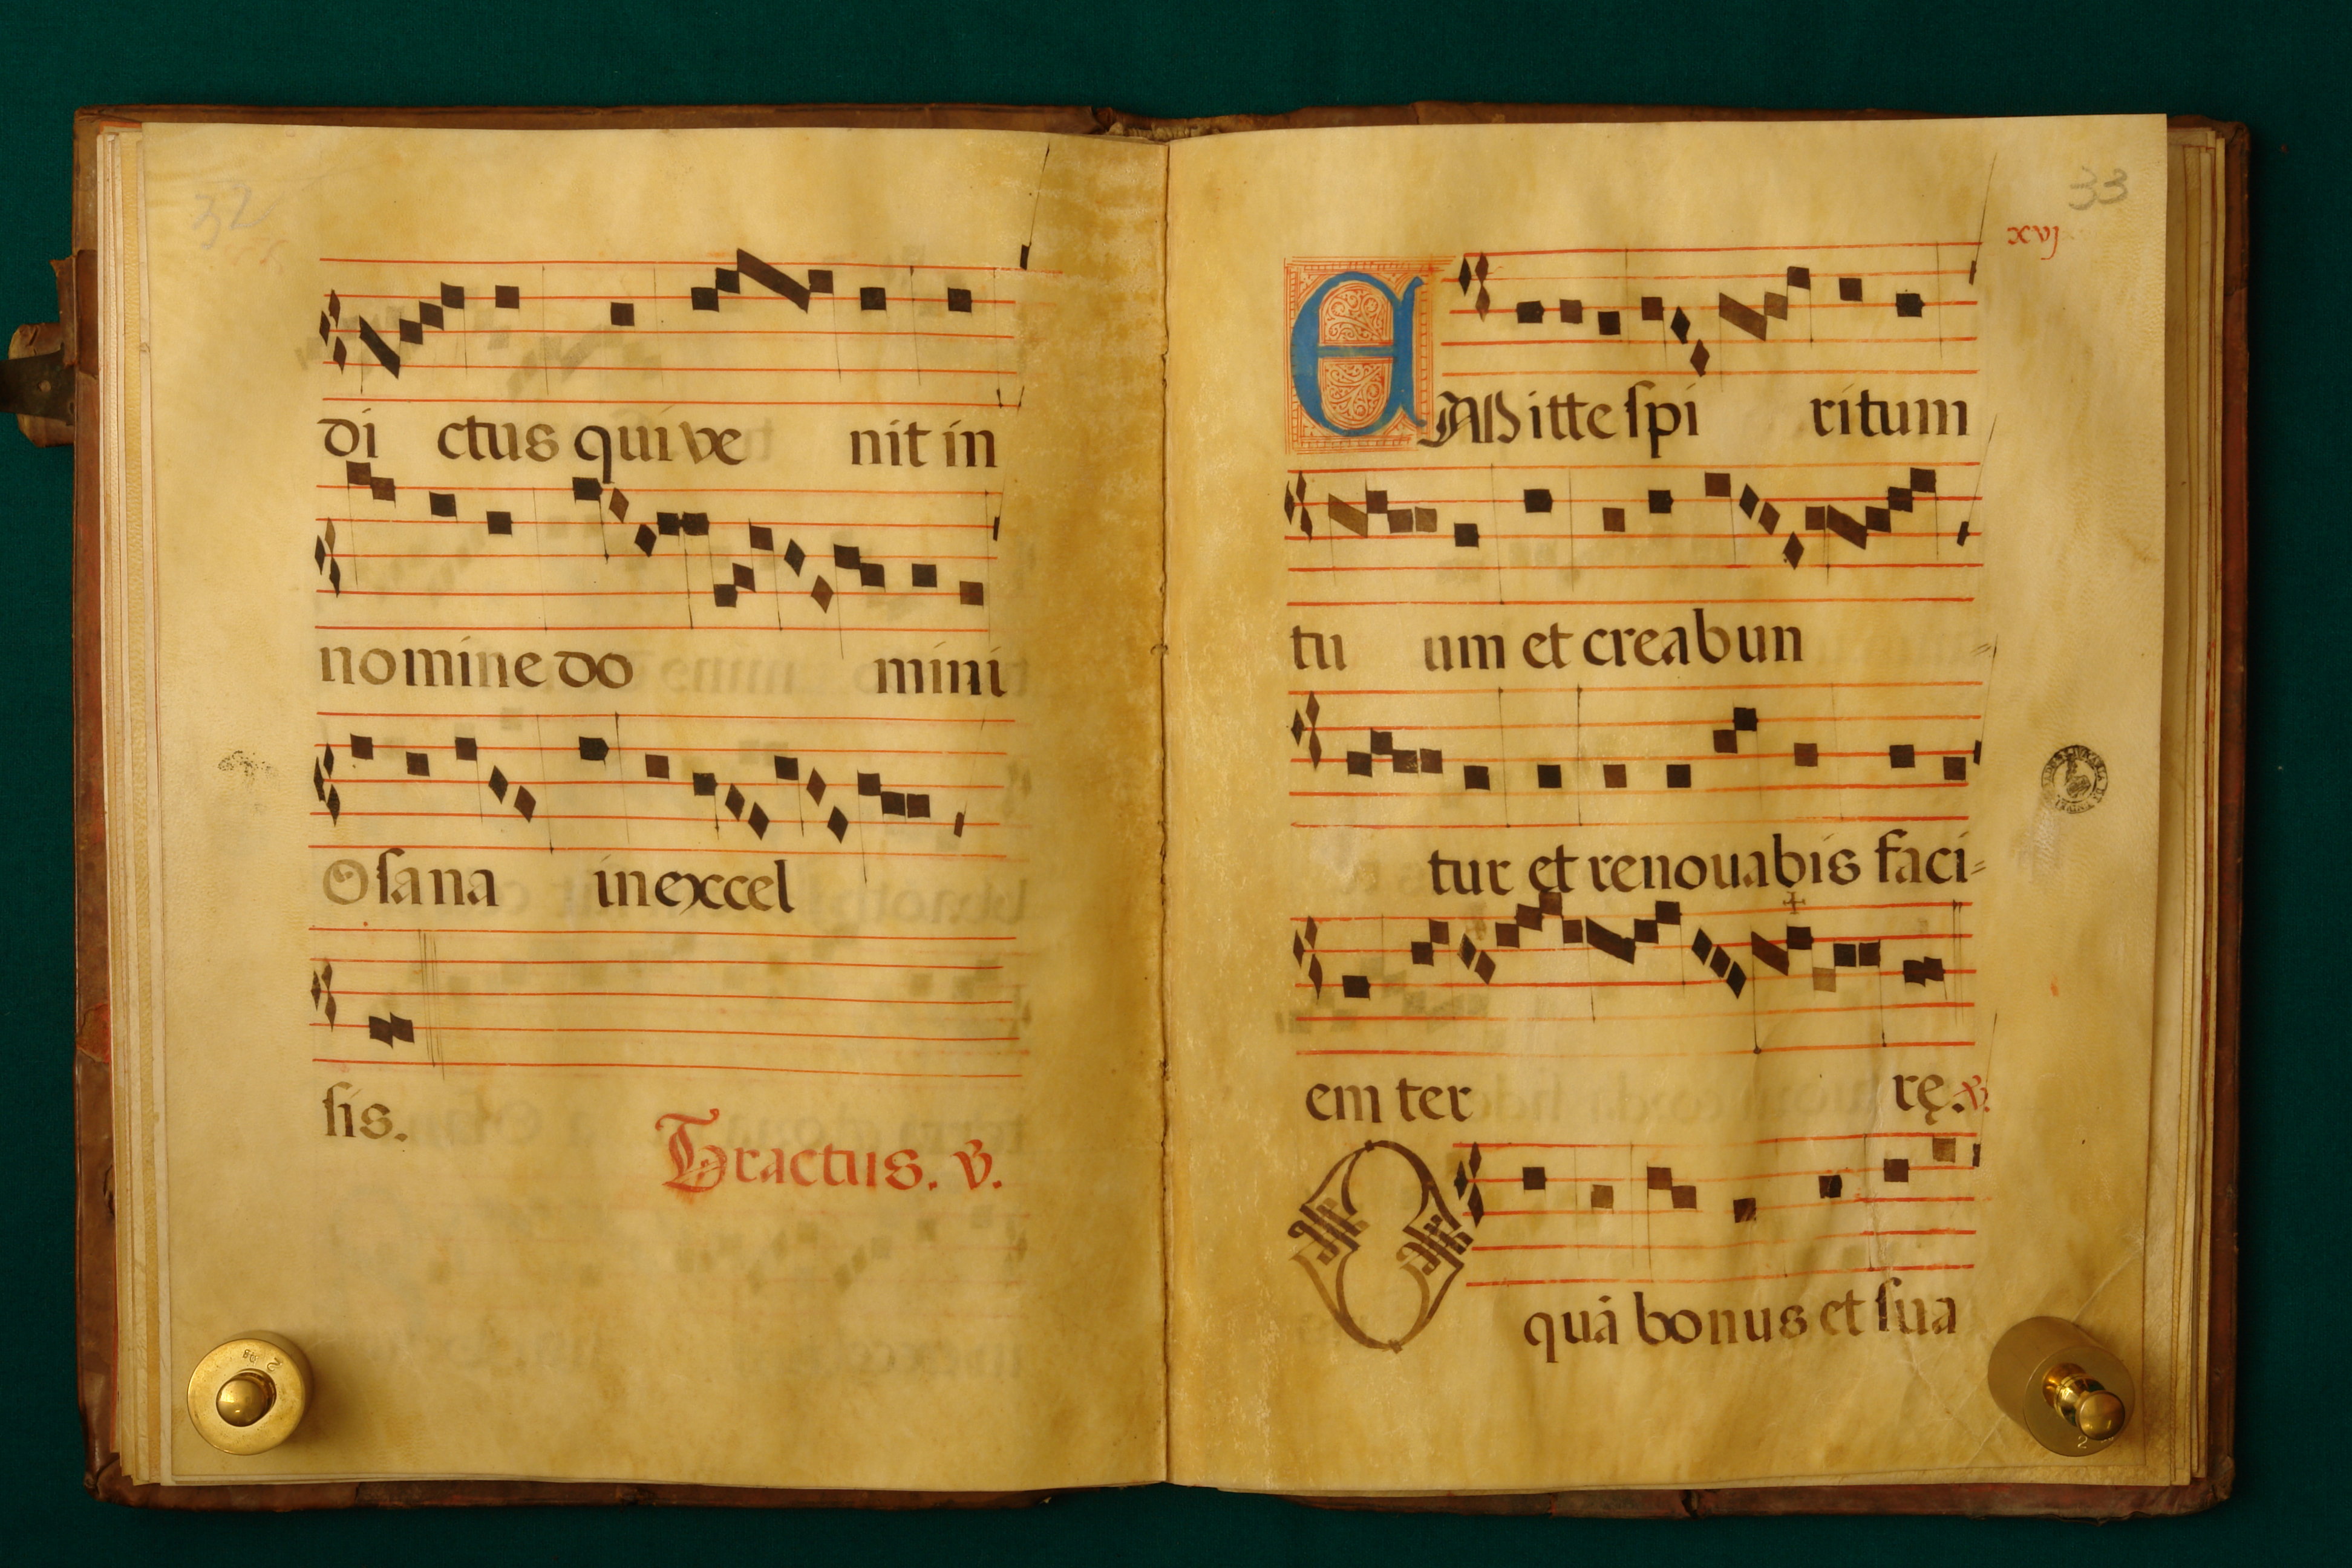 32
di ctus qui ve nit in
nomine do mini
Osana in excel
sis.
Tractus. V.
33
xvj
EMitte spi ritum
tu um et creabun
tur et renouabis faci=
em ter rę. V.
O quā bonus et sua